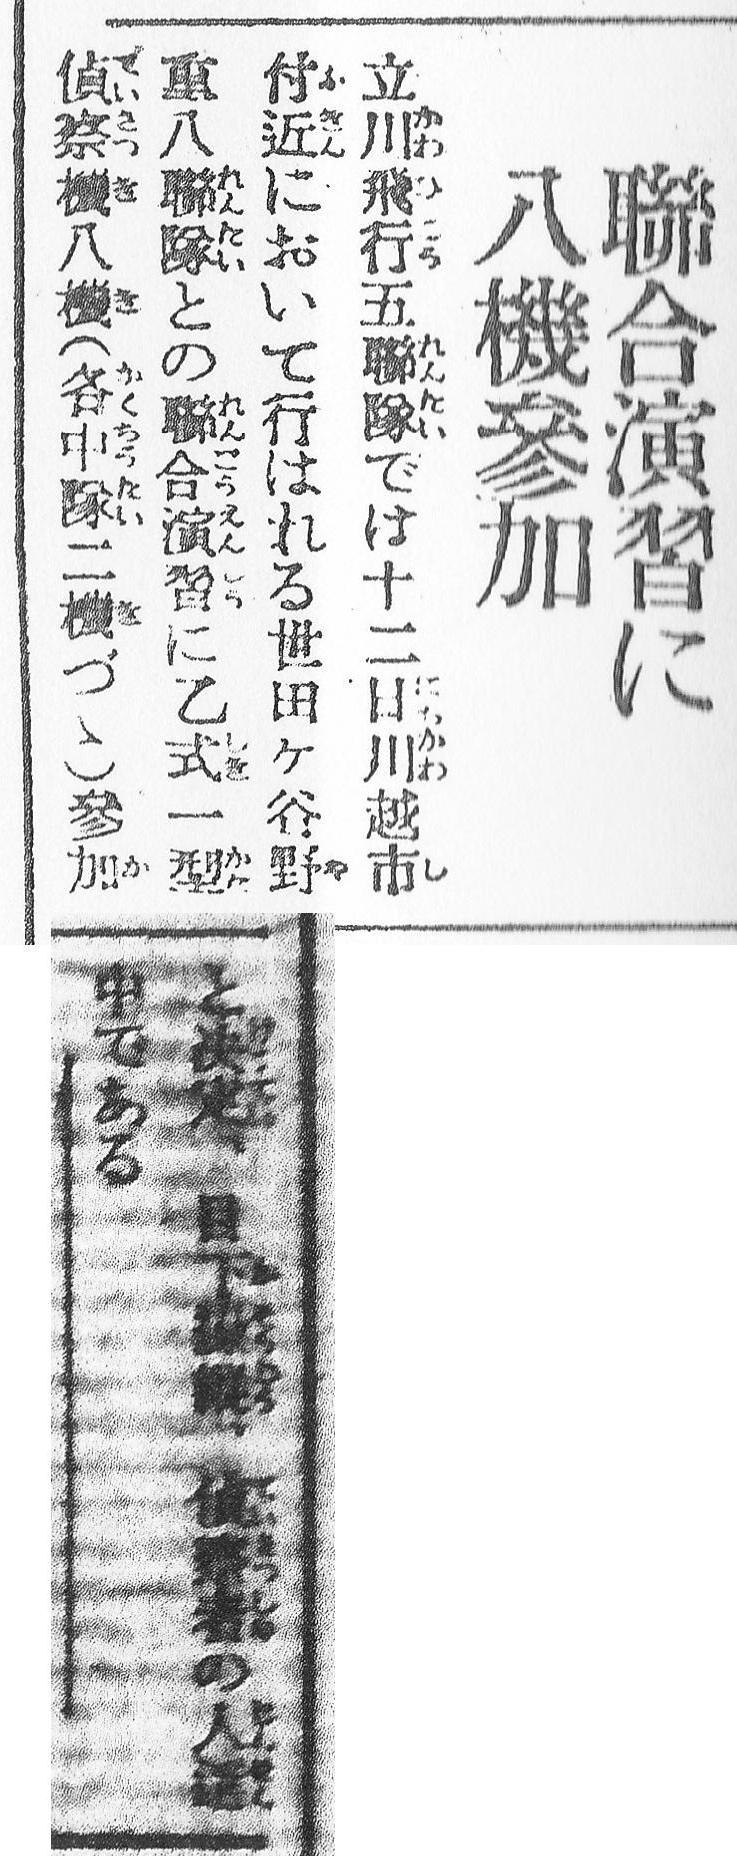 聯合演習に
八機參加
立川飛行五聯隊では十二日川越市
付近において行はれる世田ケ谷野
重八聯隊との聯合演習に乙式一型
偵察機八機(各中隊二機づゝ)參加
と決定、目下操縦、偵察者の人選
中である